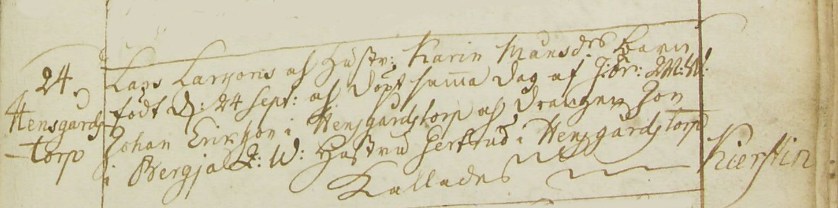 24
Hensgards
torp
Lars Larssons och Hustr: Karin Månsdrs Barn
födt d: 24 Sept: och döpt samma dag af
Johan Ericsson i Hensgardstorp och Drängen Jon
i Berga Hustru Gertrud i Hensgårdstorp
Kallades
Kierstin